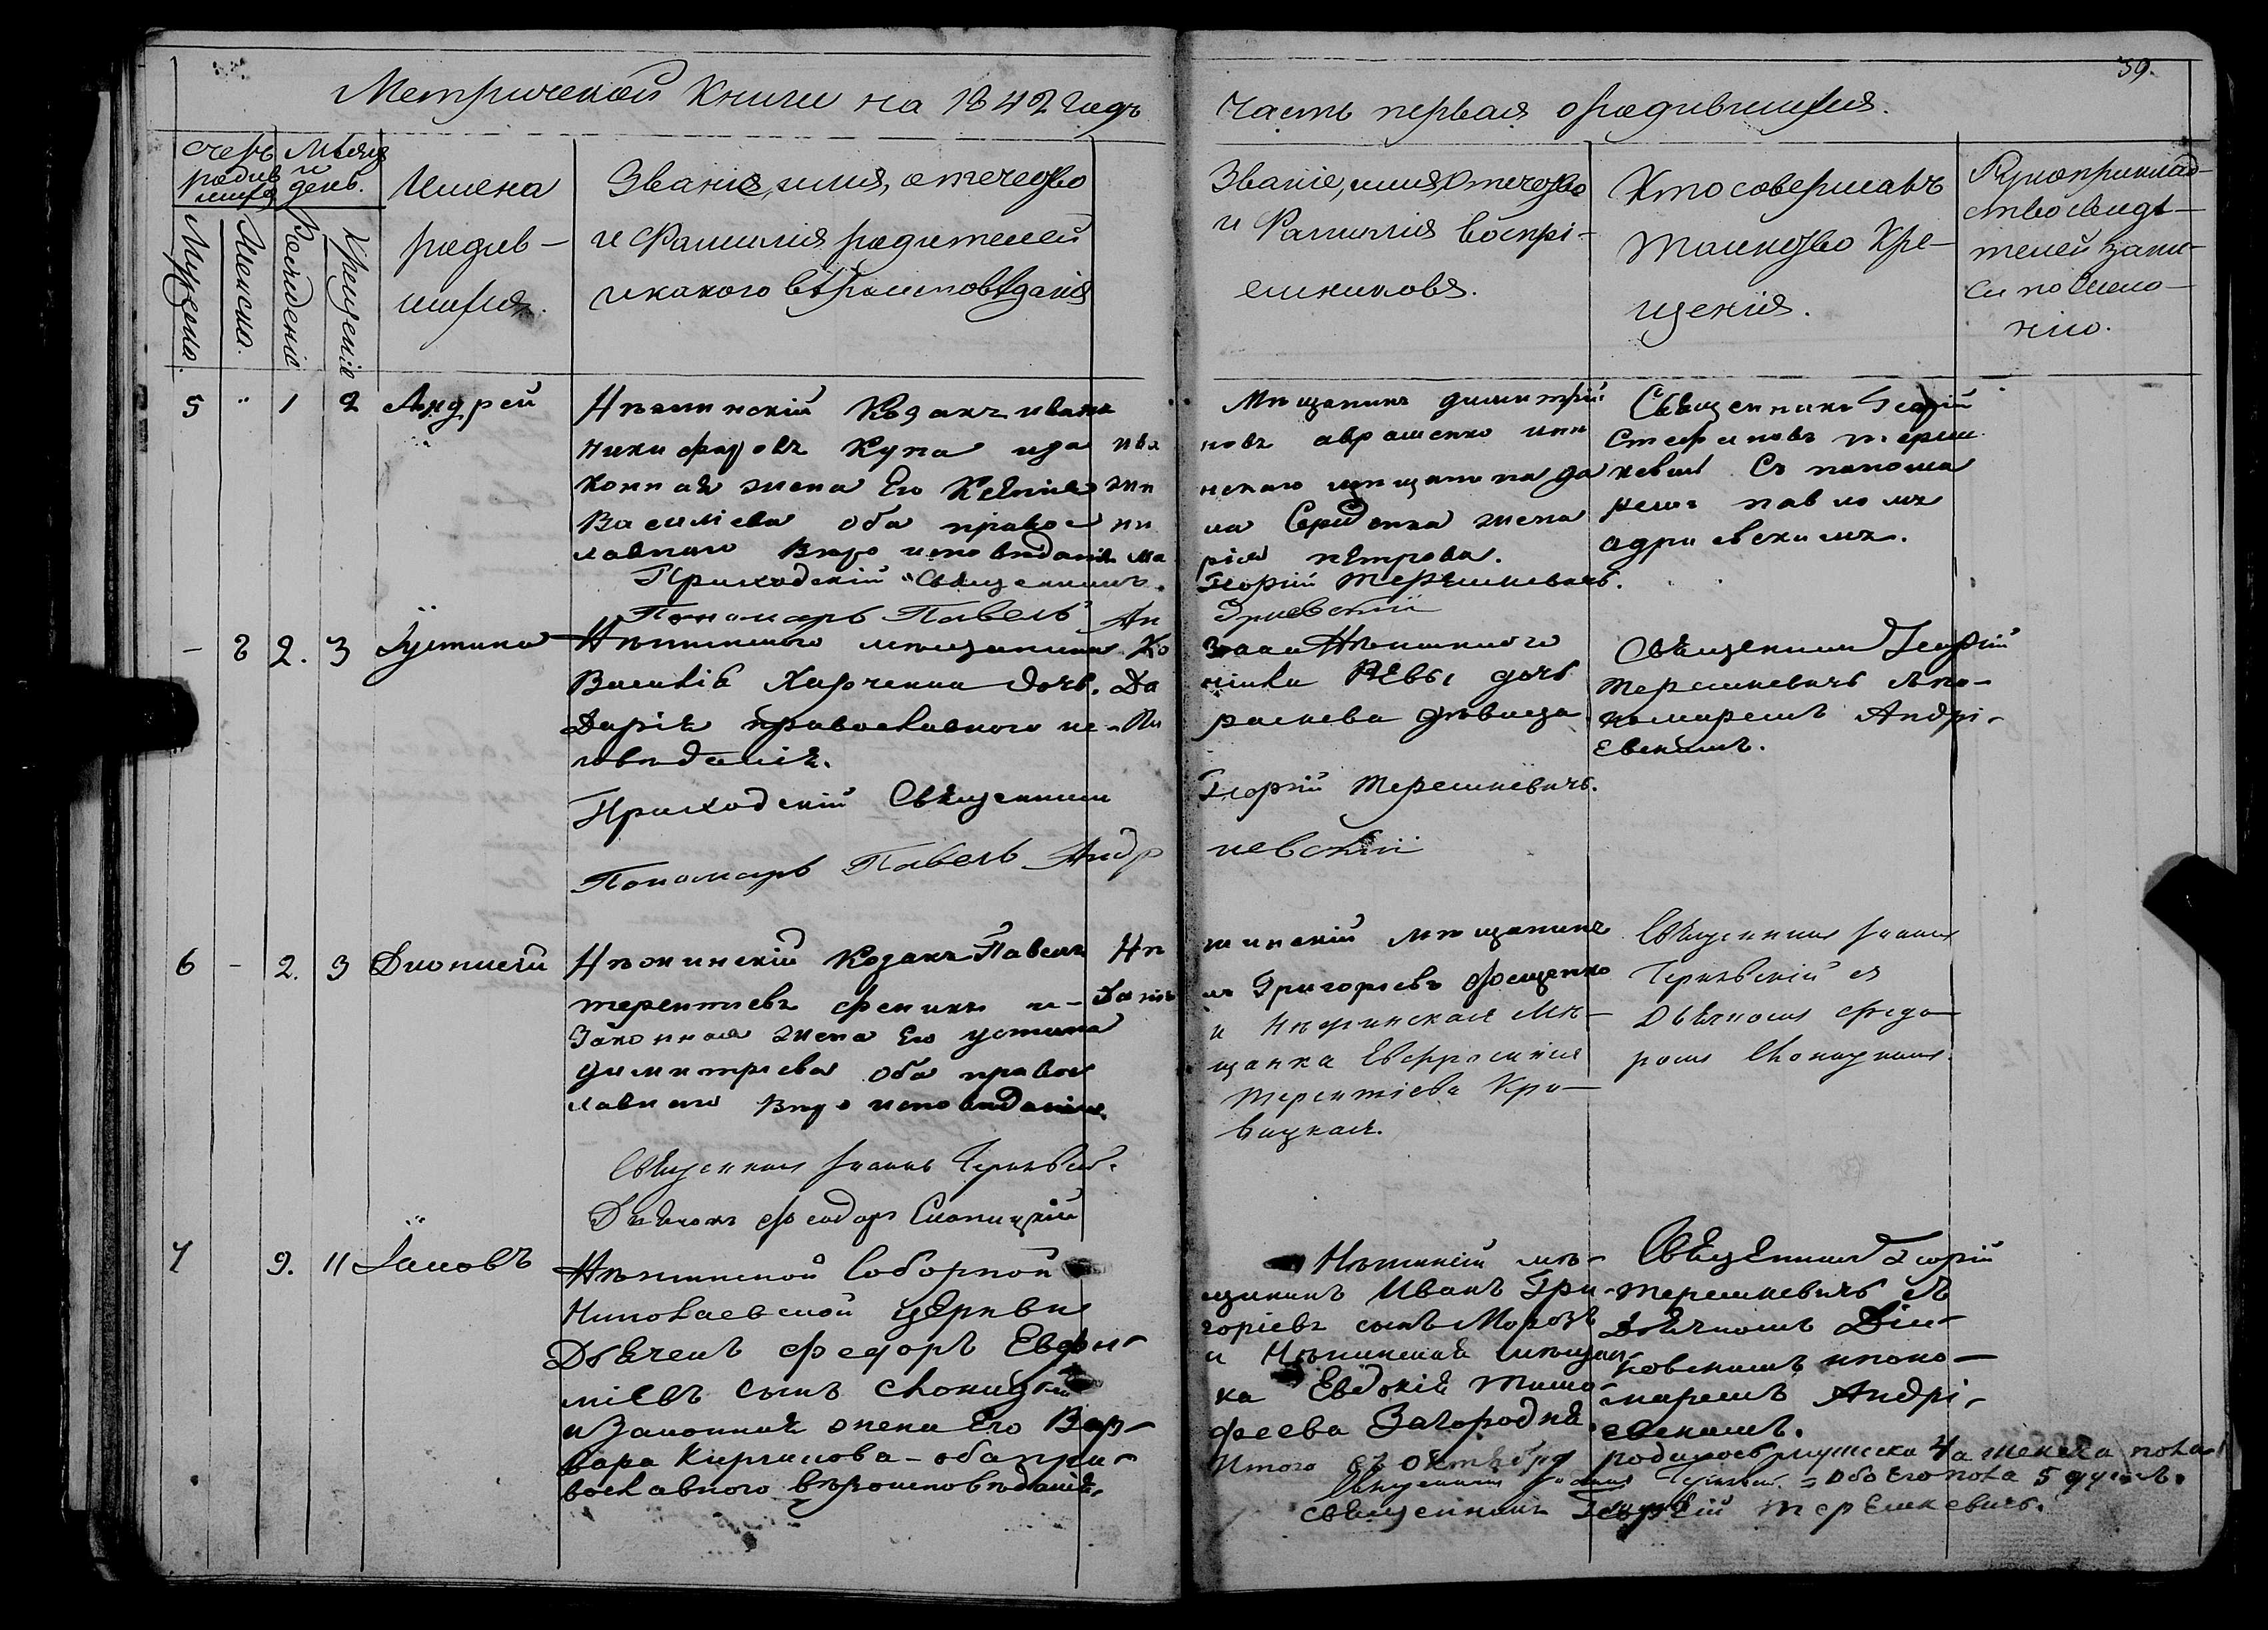 59.
Метрической Книги на 1842 годъ
Часть первая о родившихся.
Счетъ родившихся
Мѣсяцъ и день.
Мужеска.
Женска.
Рожденіе
Крещеніе
Имена
родив-
шихся.
Званіе, имя, отечество
и Фамилія родителей
и какого вѣроисповѣданія
Званіе, имя, отечество
и Фамилія воспрі-
емниковъ.
Кто совершалъ
таинство Кре-
щенія.
Рукоприклад-
ство свидѣ-
телей запи-
си по жела-
нію.
5 " 1 2 Андрей
Нѣжинскій Козакъ Иванъ
Никифоровъ Купа и за
конная жена Его
Василіева оба правос
лавнаго вѣро исповѣданія
Приходскій Священникъ
Пономарь Павелъ Ан
Мѣщанинъ Димитрій
новъ авраменко
на Середенка жена
рія петрова.
Георгій Терешкевичъ.
дріевскій
Священникъ Георгій
Стефановъ тереш
кевичь Съ понома
ремъ павломъ
адріевскимъ.
- 2 2. 3 Іустина
Нѣжинскаго мѣщанина
Василія Харченка дочь
Дарія православнаго ис-
повѣданія.
Приходскій Священникъ
Пономарь Павелъ Андр
Ко
зака Нѣжинскаго
Ревы дочь
Па
раскева дѣвица
Георгій Терешкевичъ.
іевскій
Священникъ Георгій
Терешкевичъ съ по-
номаремъ Андрі-
Евскимъ.
6 - 2. 3 Діонисій
Нѣжинскій Козакъ Павелъ
терентіевъ феникъ и-
Законная жена Его устина
димитріева оба правос
лавнаго вѣро исповѣданія.
Священникъ Іоаннъ
Дьячокъ Феодоръ Слоницкій
Нѣ
жинскій мѣщанинъ
Григоріевъ Фещенко
и Нѣжинская Мѣ-
щанка Евфросинія
Терентіева Кри-
вицкая.
Священникъ Іоаннъ
съ
Дьячкомъ Феодо-
ромъ Слоницкимъ.
7 9. 11 Іаковъ
Нѣжинской Соборной
Николаевской Церкви
Дьячекъ Федоръ Евфи-
міевъ сынъ Слоницкій
и Законная жена Его Вар-
вара Кирилова - оба пра-
вославнаго вѣроисповѣданія.
Нѣжинскій мѣ-
щанинъ Иванъ Гри-
горіевъ сынъ Морозъ
и Нѣжинская мѣщан-
ка Евдокія Тимо-
феева Загородня.
Священникъ Георгій
Терешкевичъ съ
Дьячкомъ Діа-
ковскимъ и поно-
маремъ Андрі-
евскимъ.
Итого въ Октябрѣ родилось мужеска 4 а женска пола 1
Священникъ Іоаннъ обоего пола 5 душъ.
Священникъ Георгій Терешкевичъ.